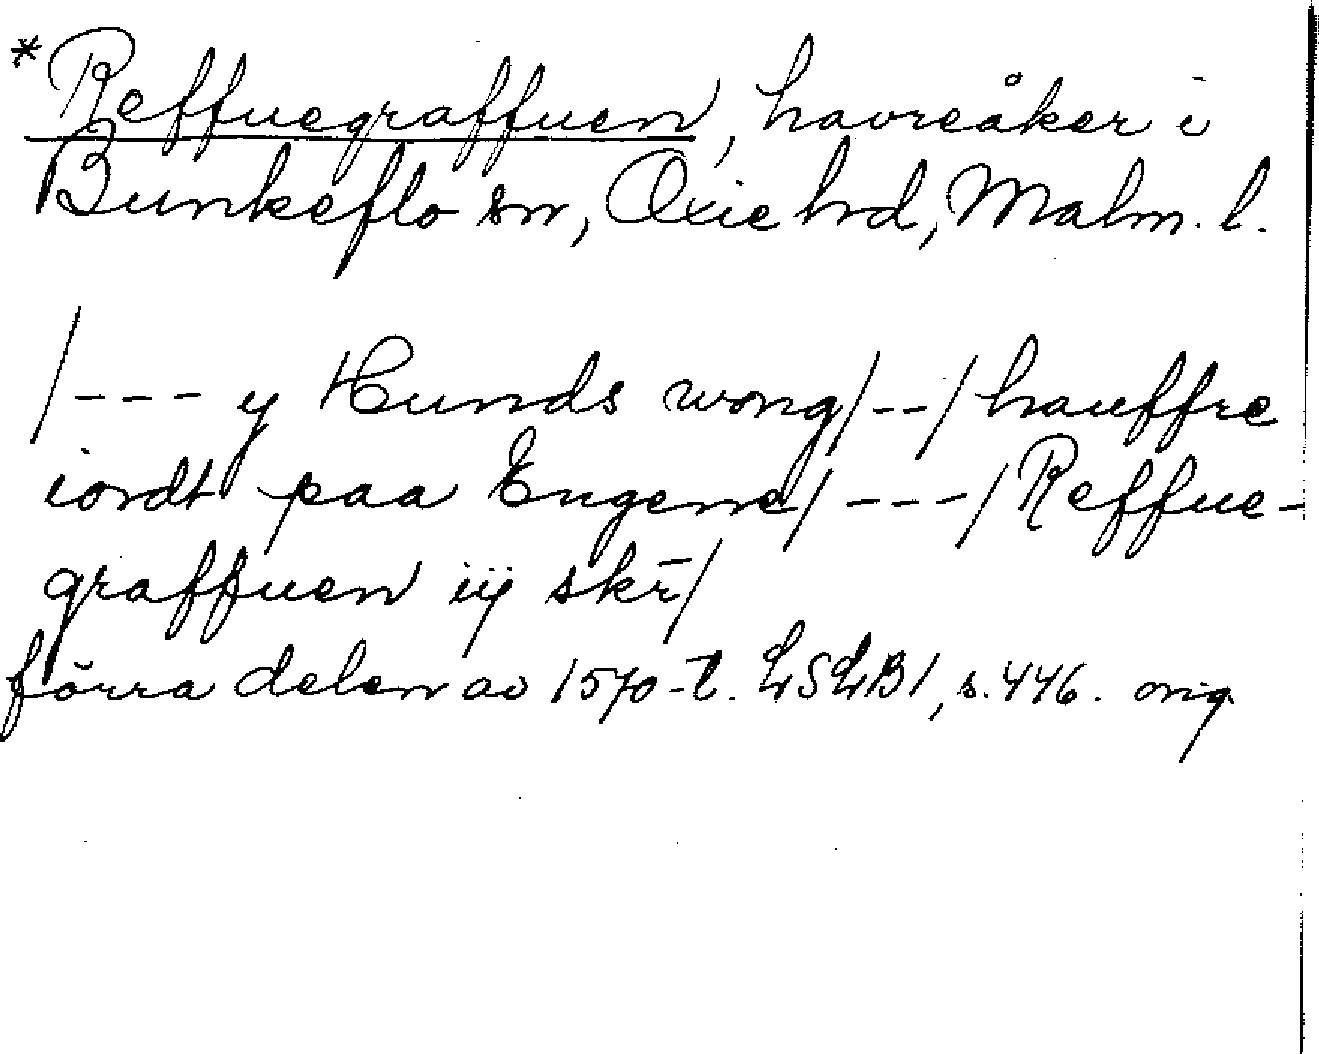 *Reffuegraffuen, havreåker i
Bunkeflo sn, Oxie hd, Malm. l.
/--- y Hunds wong/--/hauffre
iordt paa Engene/---/Reffue-
graffuen iij skr̄/
förra delen av 1570-t. LSLB1, s. 446. orig.